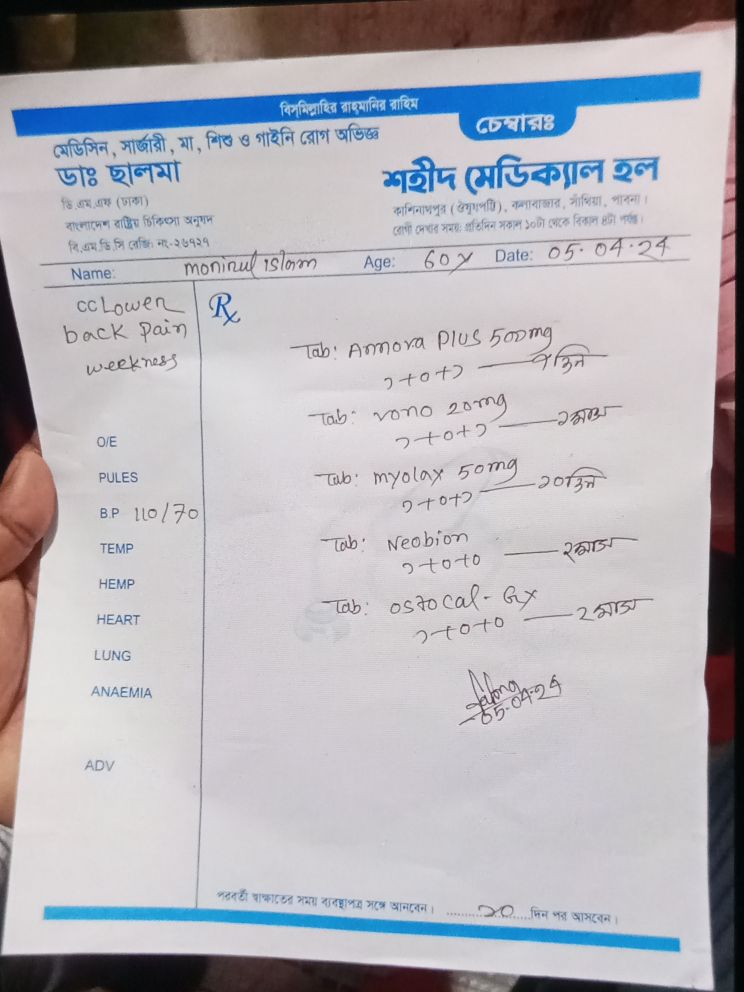 বিসমিল্লাহির রাহমানির রাহিম
মেডিসিন, সার্জারী, মা, শিশু ও গাইনি রোগ অভিজ্ঞ
ডাঃ ছালমা
ডি.এম.এফ (ঢাকা)
বাংলাদেশ রাষ্ট্রিয় চিকিৎসা অনুষদ
বি.এম.ডি.সি রেজি: নং-২৬৭২৭
চেম্বারঃ
শহীদ মেডিক্যাল হল
কাশিনাথপুর (ঔষুধপট্টি), কলাবাজার, সাঁথিয়া, পাবনা।
রোগী দেখার সময়: প্রতিদিন সকাল ১০টা থেকে বিকাল ৪টা পর্যন্ত।
Name: monirul islam Age: 60y Date: 05.04.24
cc Lower
back pain
weekness
O/E
PULES
B.P 110/70
TEMP
HEMP
HEART
LUNG
ANAEMIA
ADV
Rx
Tab: Anmora Plus 500mg
১+০+১ — ৭ দিন
Tab: vono 20mg
১+০+১ — ১মাস
Tab: myolax 50mg
১+০+১ — ১০দিন
Tab: Neobion
১+০+০ — ২মাস
Tab: ostocal-Gx
১+০+০ — ২মাস
05-04-24
পরবর্তী স্বাক্ষাতের সময় ব্যবস্থাপত্র সঙ্গে আনবেন। ..........২০......দিন পর আসবেন।